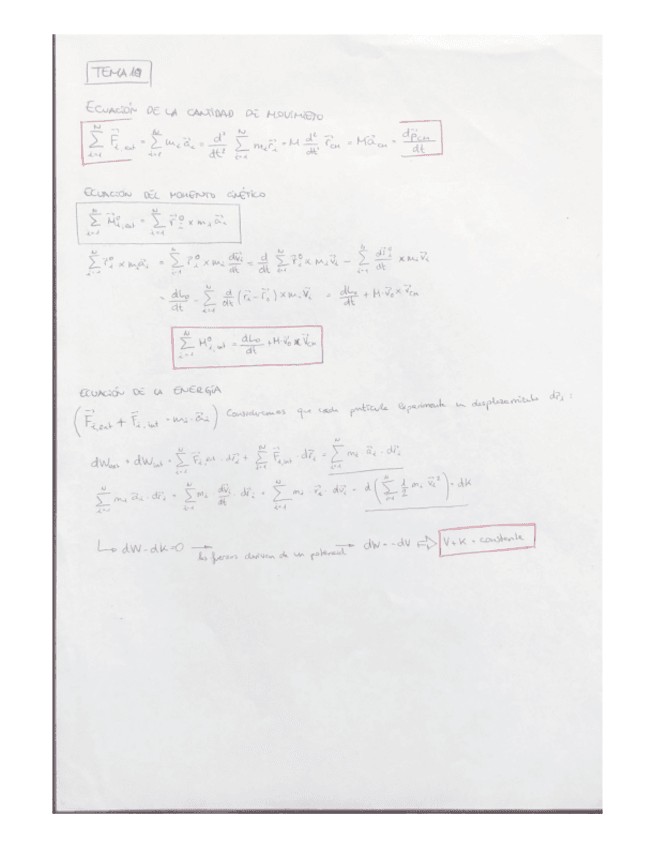 TEMA 10
ECUACIÓN DE LA CANTIDAD DE MOVIMIENTO
$\sum_{i=1}^{N} \vec{F}_{i,ext} = \sum_{i=1}^{N} m_i \vec{a}_i = \frac{d^2}{dt^2} \sum_{i=1}^{N} m_i \vec{r}_i = M \frac{d^2}{dt^2} \vec{r}_{CM} = M\vec{a}_{CM} = \frac{d\vec{p}_{CM}}{dt}$
ECUACIÓN DEL MOMENTO CINÉTICO
$\sum_{i=1}^{N} \vec{M}^0_{i,ext} = \sum_{i=1}^{N} \vec{r}_i^0 \times m_i \vec{a}_i$
$\sum_{i=1}^{N} \vec{r}_i^0 \times m_i \vec{a}_i = \sum_{i=1}^{N} \vec{r}_i^0 \times m_i \frac{d\vec{v}_i}{dt} = \frac{d}{dt} \sum_{i=1}^{N} \vec{r}_i^0 \times m_i \vec{v}_i - \sum_{i=1}^{N} \frac{d\vec{r}_i^0}{dt} \times m_i \vec{v}_i$
$= \frac{dL_0}{dt} - \sum_{i=1}^{N} \frac{d}{dt} (\vec{r}_i - \vec{r}_0) \times m_i \vec{v}_i = \frac{dL_0}{dt} + M \cdot \vec{v}_0 \times \vec{v}_{CM}$
$\sum_{i=1}^{N} M^0_{i,ext} = \frac{dL_0}{dt} + M \cdot \vec{v}_0 \times \vec{v}_{CM}$
ECUACIÓN DE LA ENERGÍA
$(\vec{F}_{i,ext} + \vec{F}_{i,int} = m_i \cdot \vec{a}_i)$ Consideremos que cada partícula experimenta un desplazamiento $d\vec{r}_i$:
$dW_{ext} + dW_{int} = \sum_{i=1}^{N} \vec{F}_{i,ext} \cdot d\vec{r}_i + \sum_{i=1}^{N} \vec{F}_{i,int} \cdot d\vec{r}_i = \sum_{i=1}^{N} m_i \vec{a}_i \cdot d\vec{r}_i$
$\sum_{i=1}^{N} m_i \vec{a}_i \cdot d\vec{r}_i = \sum_{i=1}^{N} m_i \frac{d\vec{v}_i}{dt} \cdot d\vec{r}_i = \sum_{i=1}^{N} m_i \cdot \vec{v}_i \cdot d\vec{v}_i = d\left(\sum_{i=1}^{N} \frac{1}{2} m_i \vec{v}_i^2\right) = dK$
↳ dW - dK = 0 → las fuerzas derivan de un potencial → dW = -dV ⇒ V + K = constante